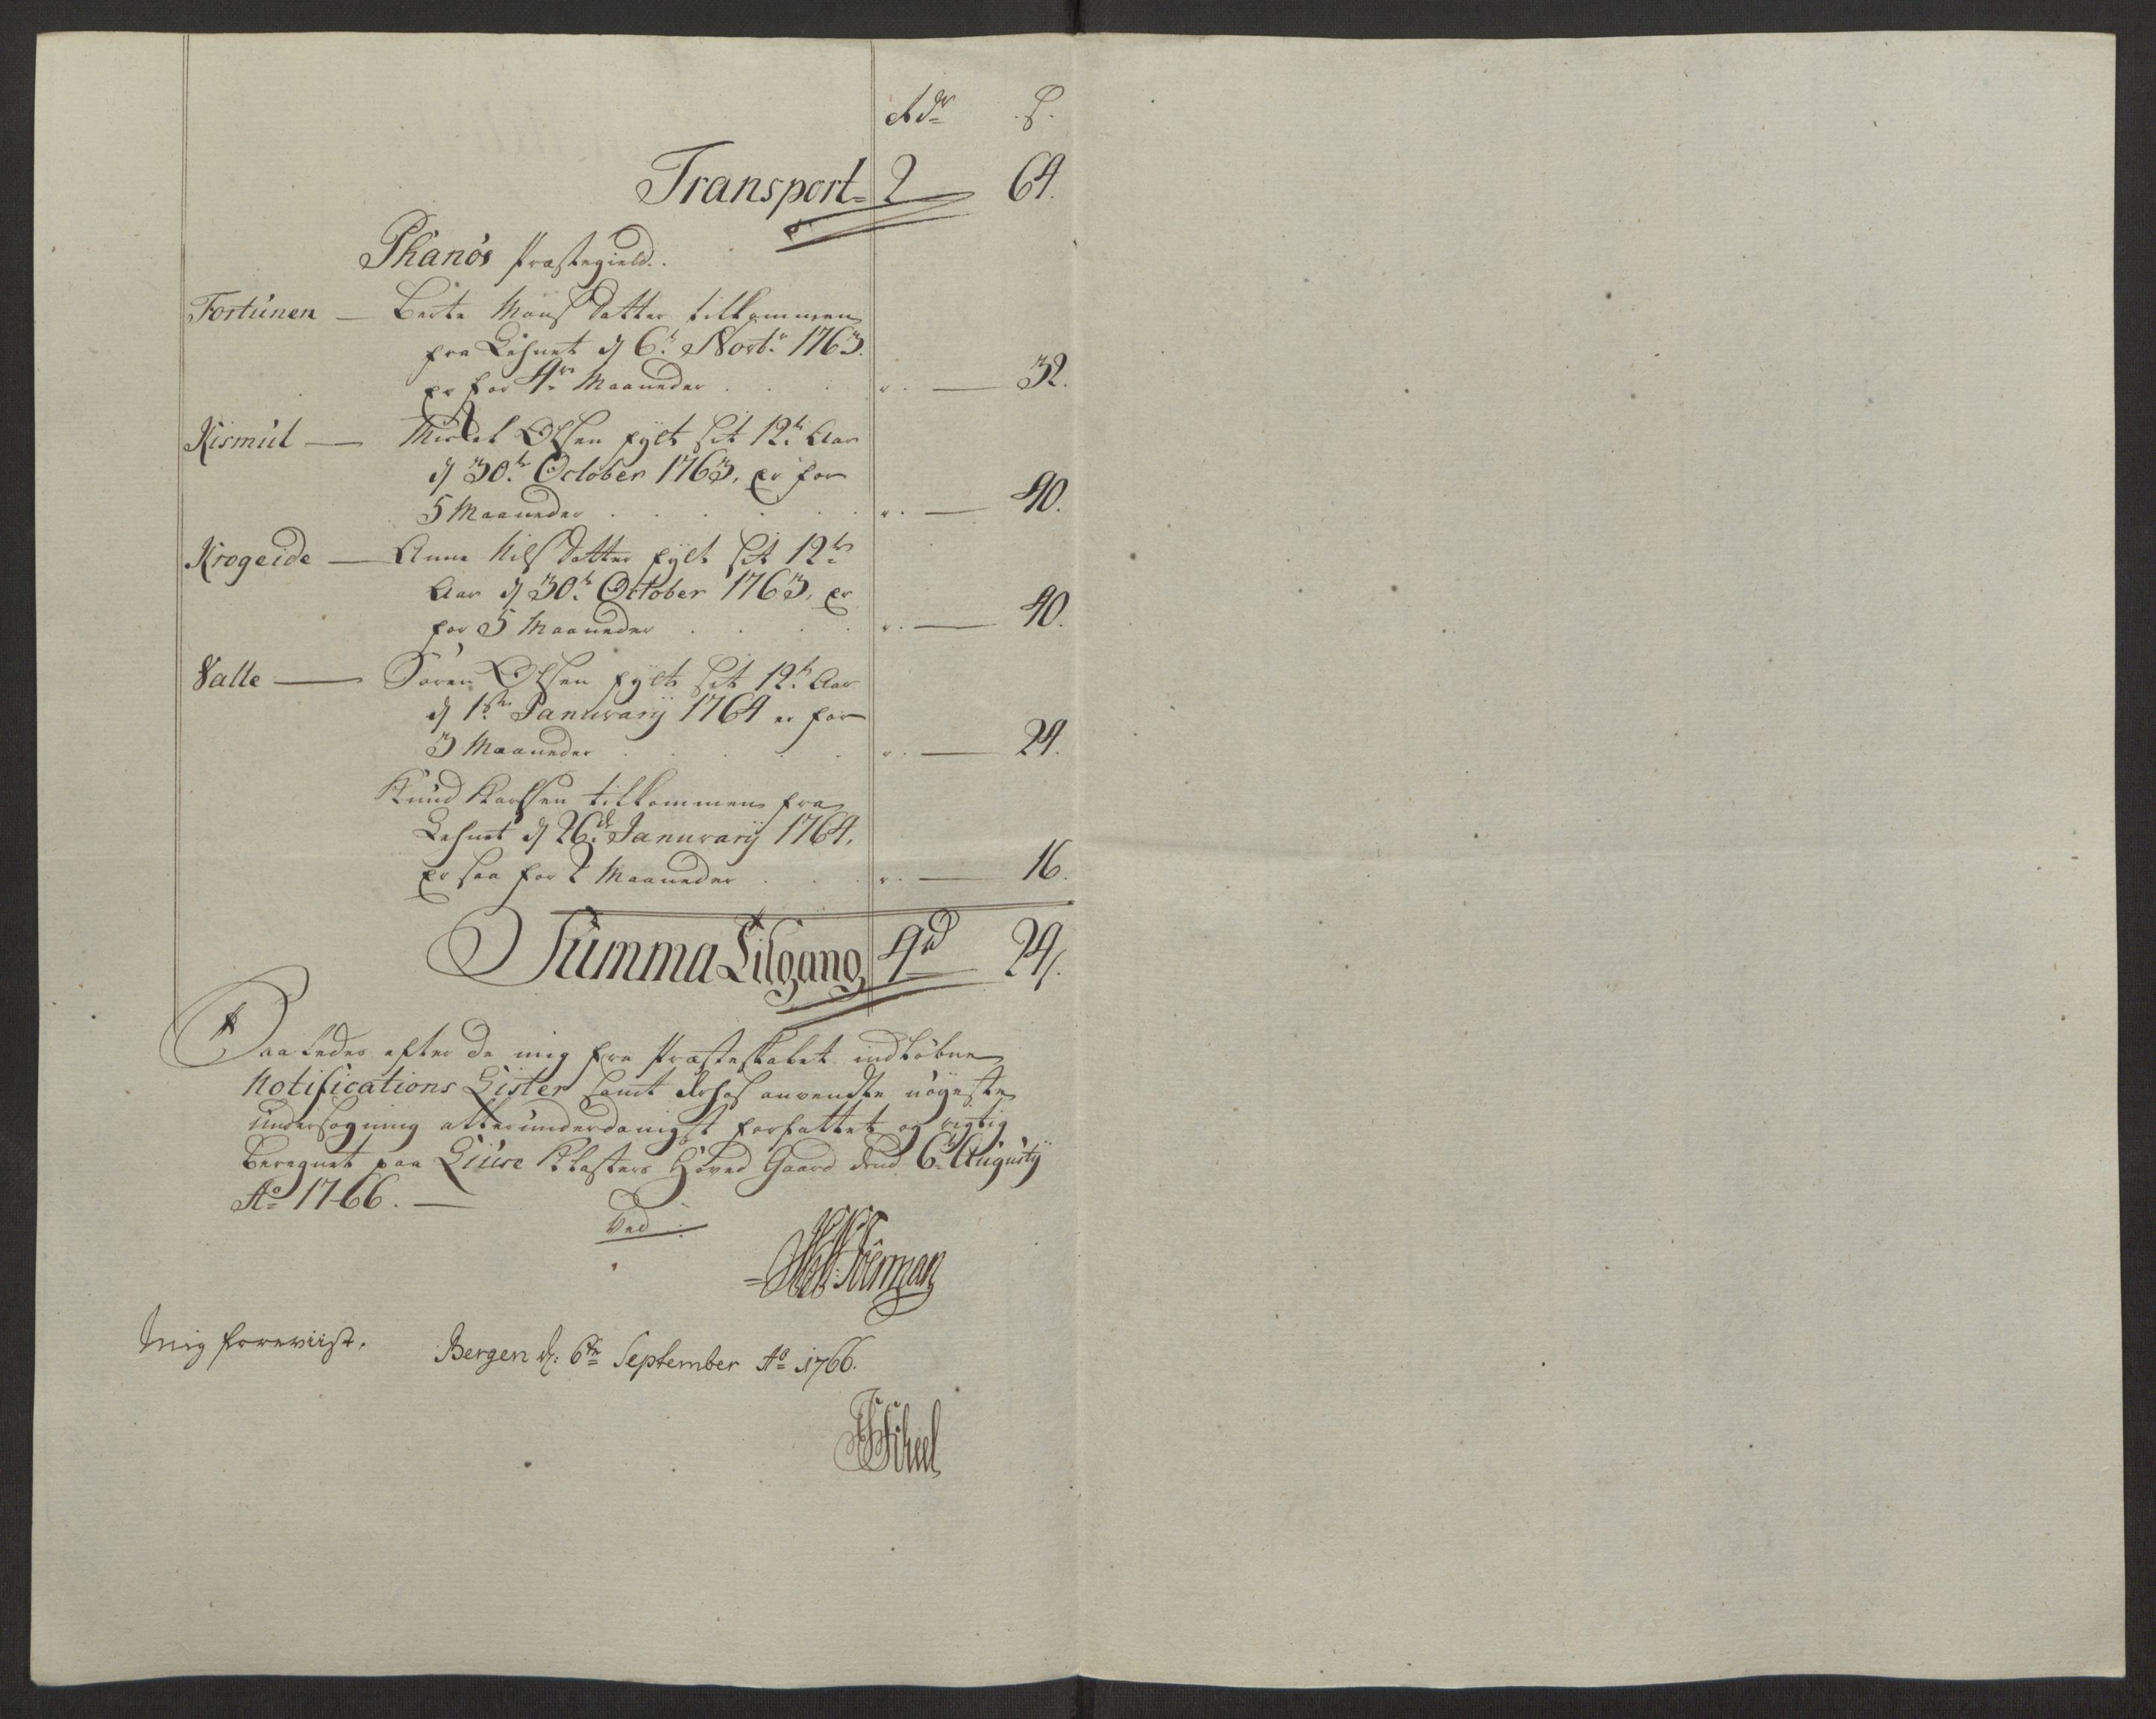 Rdr ß.
Transport 2 64.
Phanös Præstegield.
Fortunen — Berte Monsdatter tilkommen
fra Lehnet d 6te Novbr 1763.
er for 4re Maaneder . . . „. — 32.
Kismul — Michel Olsen fylt sit 12te Aar
d 30te October 1763, er for
5 Maaneder . . . . . „. — 40.
Krogeide — Anne Nilsdatter fylt sit 12te
Aar d 30te October 1763, er
for 5 Maaneder . . . . „. — 40.
Valle — Sören Olsen fylt sit 12te Aar
d 1ste Januvarij 1764 er for
3 Maaneder . . . . „. — 24.
Knud Larssen tilkommen fra
Lehnet d 26de Januvarij 1764,
er saa for 2 Maaneder . . . „. — 16.
Summa Tilgang 4rd 24ß.
Saaledes efter de mig fra Præsteskabet indløbne
Notifications Lister samt derhos anvendte nöyeste
undersögning allerunderdanigst forfattet og rigtig
beregnet paa Liuse Klosters Hoved Gaard dend 6te Augustij
Ao 1766. —
Ved
Forman
Mig foreviist. Bergen d: 6te September Ao 1766.